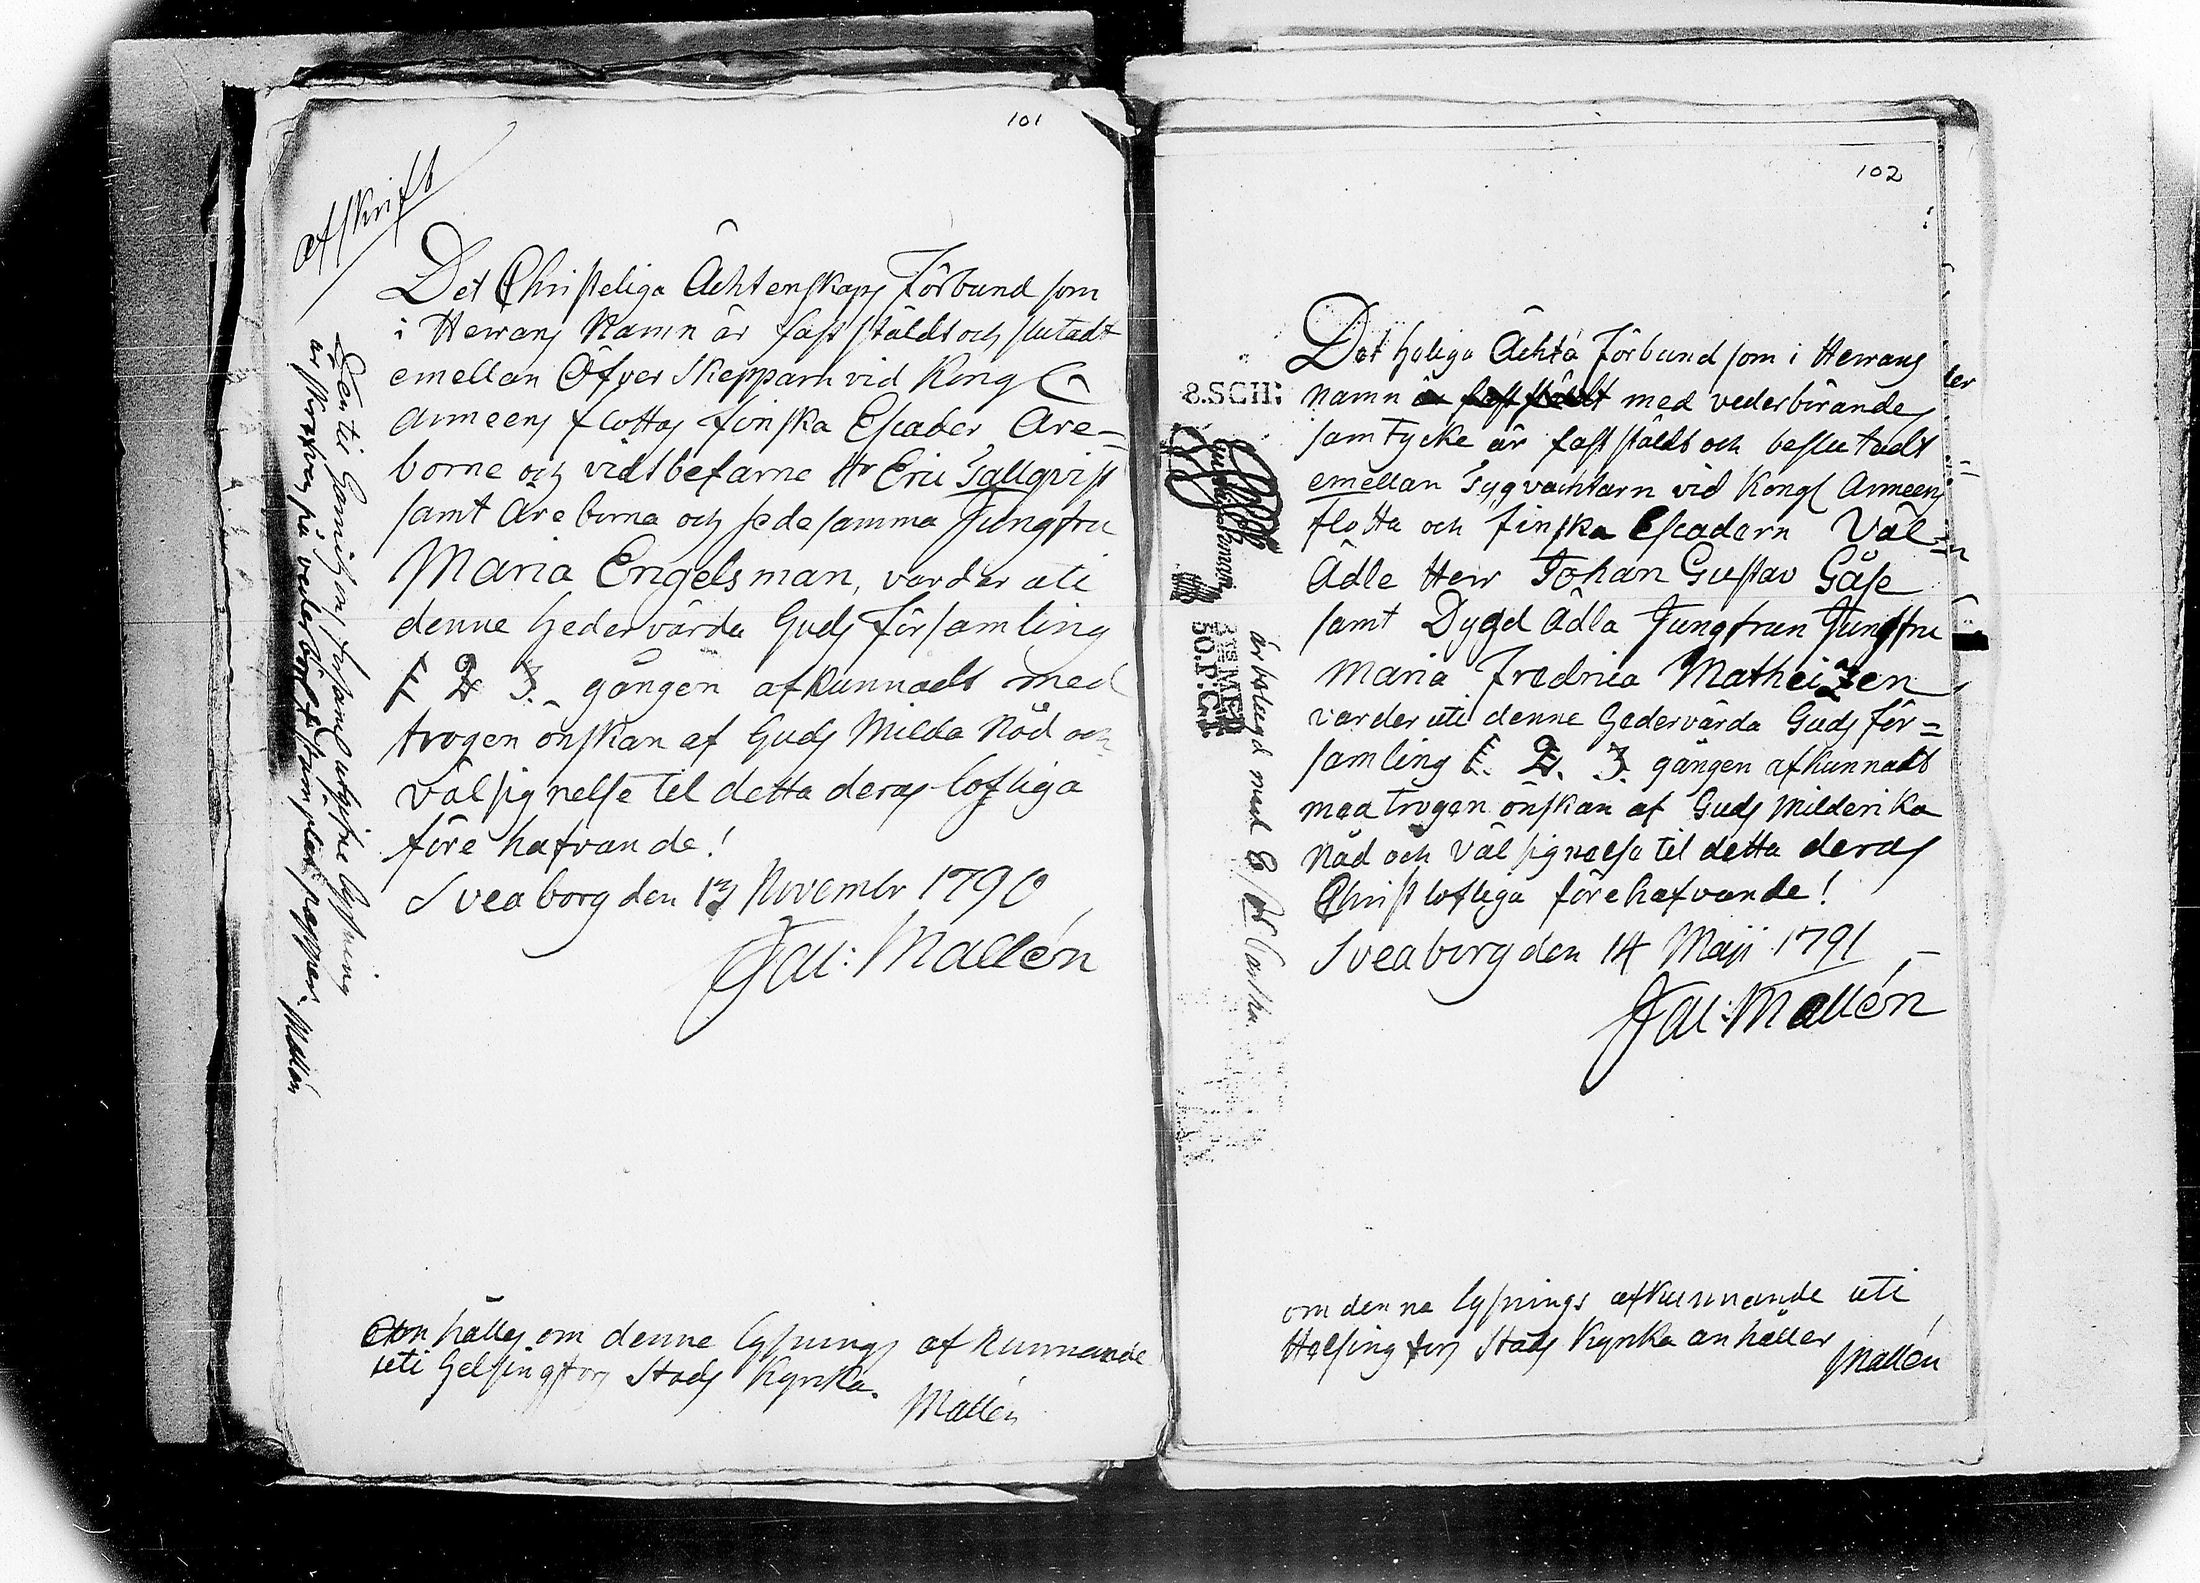 101
afskrift
Det Christeliga Ächtenskaps Förbund som
i Herrans Namn är fast stäldt och slutadt
emellan Öfver Skepparn vid Kongl
Armeens flottas finska Escader Äre=
borne och vidtbefarne Hr Eric Tallqvist
samt Äreborna och sedesamma Jungfru
Maria Engelsman, varder uti
denne hedervärda Guds Församling
1 2 3. gången afkunnadt med
trogen önskan af Guds Milda Nåd och
välsignelse til detta deras lofliga
före hafvande!
Sveaborg den 13 Novembr 1790
Jac: Mallén
Den til Garnizons församl utgifne lysning
är skrefven på vederbörl stämplat papper. Mallén
anhålles om denne lysnings af kunnande
uti Helsingfors Stads Kyrka.
Mallén
102
Det heliga Ächta Förbund som i Herrans
Namn är fast stäldt med vederbörandes
samtycke är fast stäldt och beslutadt
emellan Tygvachtarn vid Kongl Armeens
flotta och finska Escadern Väl=
Ädle Herr Johan Gustav Gåse
samt Dygd Ädla Jungfrun Jungfru
Maria Fredrica Matheizen
varder uti denne hedervärda Guds För=
samling 1. 2. 3. gången afkunnadt
med trogen önskan af Guds Milderika
Nåd och välsignelse til detta deras
Christlofliga förehafvande!
Sveaborg den 14 Maji 1791
Jac: Mallén
8.SCH:
3ne MED
50.P.CT.
är belagd med
om denna lysnings afkunnande uti
Helsingfors Stads Kyrka an håller
Mallén